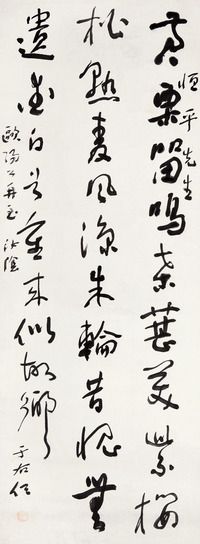 恒平先生
黄栗留鸣桑葚美紫樱
桃熟麦风凉朱轮昔愧无
遗爱白首重来似故乡
欧阳公再至汝阴
于右任